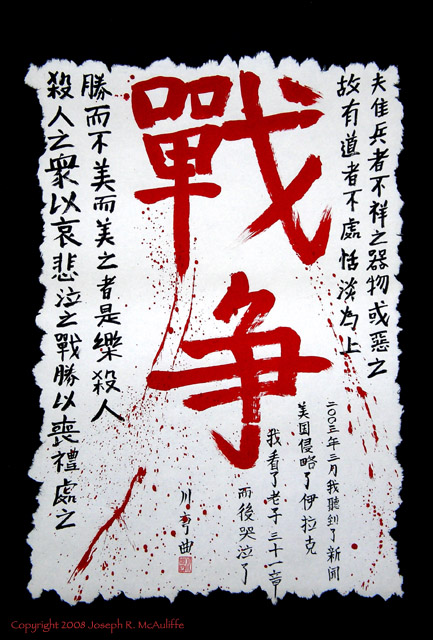 夫佳兵者不祥之器物或惡之
故有道者不處恬淡为上
戰争
勝而不美而美之者是樂殺人
殺人之衆以哀悲泣之戰勝以喪禮處之
二〇〇三年三月我聽到了新聞
美国侵略了伊拉克
我看了老子三十一章
而後哭泣了
川亨曲
Copyright 2008 Joseph R. McAuliffe